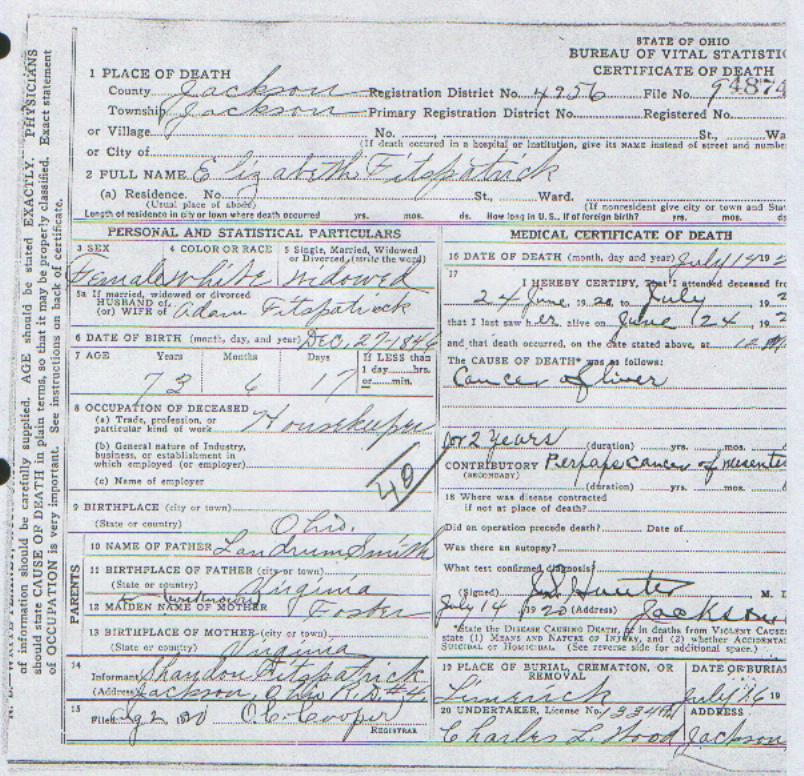 STATE OF OHIO
BUREAU OF VITAL STATISTIC
CERTIFICATE OF DEATH
1 PLACE OF DEATH
County Jackson Registration District No. 4956 File No. 94874
Township Jackson Primary Registration District No. Registered No.
or Village No. , St., Wa
(If death occured in a hospital or institution, give its NAME instead of street and numbe
or City of
2 FULL NAME Elizabeth Fitzpatrick
(a) Residence. No. St., Ward.
(Usual place of abode) (If nonresident give city or town and Stat
Length of residence in city or town where death occurred yrs. mos. ds. How long in U. S., if of foreign birth? yrs. mos. ds
PERSONAL AND STATISTICAL PARTICULARS
3 SEX 4 COLOR OR RACE 5 Single, Married, Widowed
or Divorced, (write the word)
Female white widowed
5a If married, widowed or divorced
HUSBAND of
(or) WIFE of Adam Fitzpatrick
6 DATE OF BIRTH (month, day, and year) Dec, 27-1846
7 AGE Years Months Days If LESS than
1 day....hrs.
or....min.
73 6 17
8 OCCUPATION OF DECEASED
(a) Trade, profession, or
particular kind of work Housekeeper
(b) General nature of Industry,
business, or establishment in
which employed (or employer)
(c) Name of employer
40
9 BIRTHPLACE (city or town)
(State or country) Ohio.
PARENTS
10 NAME OF FATHER Landrum Smith
11 BIRTHPLACE OF FATHER (city or town)
(State or country) Virginia
(unknown)
12 MAIDEN NAME OF MOTHER Foster
13 BIRTHPLACE OF MOTHER (city or town)
(State or country) Virginia
14 Informant Shandon Fitzpatrick
(Address) Jackson, Ohio R.D. #4
15 Filed Aug 2 1920 O.C. Cooper
REGISTRAR
MEDICAL CERTIFICATE OF DEATH
16 DATE OF DEATH (month, day and year) July 14 192
17 I HEREBY CERTIFY, That I attended deceased fro
24 June, 1920 to July , 192
that I last saw her alive on June 24, 192
and that death occurred, on the date stated above, at 12 M
The CAUSE OF DEATH* was as follows:
Cancer of liver
1 or 2 years (duration) yrs. mos. d
CONTRIBUTORY Perhaps cancer of mesente
(SECONDARY)
(duration) yrs. mos. d
18 Where was disease contracted
if not at place of death?
Did an operation precede death? Date of
Was there an autopsy?
What test confirmed diagnosis?
(Signed) Hunter M. D
July 14, 1920 (Address) Jackson
*State the DISEASE CAUSING DEATH, or in deaths from VIOLENT CAUSE
state (1) MEANS AND NATURE OF INJURY, and (2) whether ACCIDENTA
SUICIDAL or HOMICIDAL. (See reverse side for additional space.)
19 PLACE OF BURIAL, CREMATION, OR
REMOVAL
DATE OF BURIA
Limerick July 16 19
20 UNDERTAKER, License No. 1334A ADDRESS
Charles L. Wood Jackson
of information should be carefully supplied. AGE should be stated EXACTLY. PHYSICIANS
should state CAUSE OF DEATH in plain terms, so that it may be properly classified. Exact statement
of OCCUPATION is very important. See instructions on back of certificate.